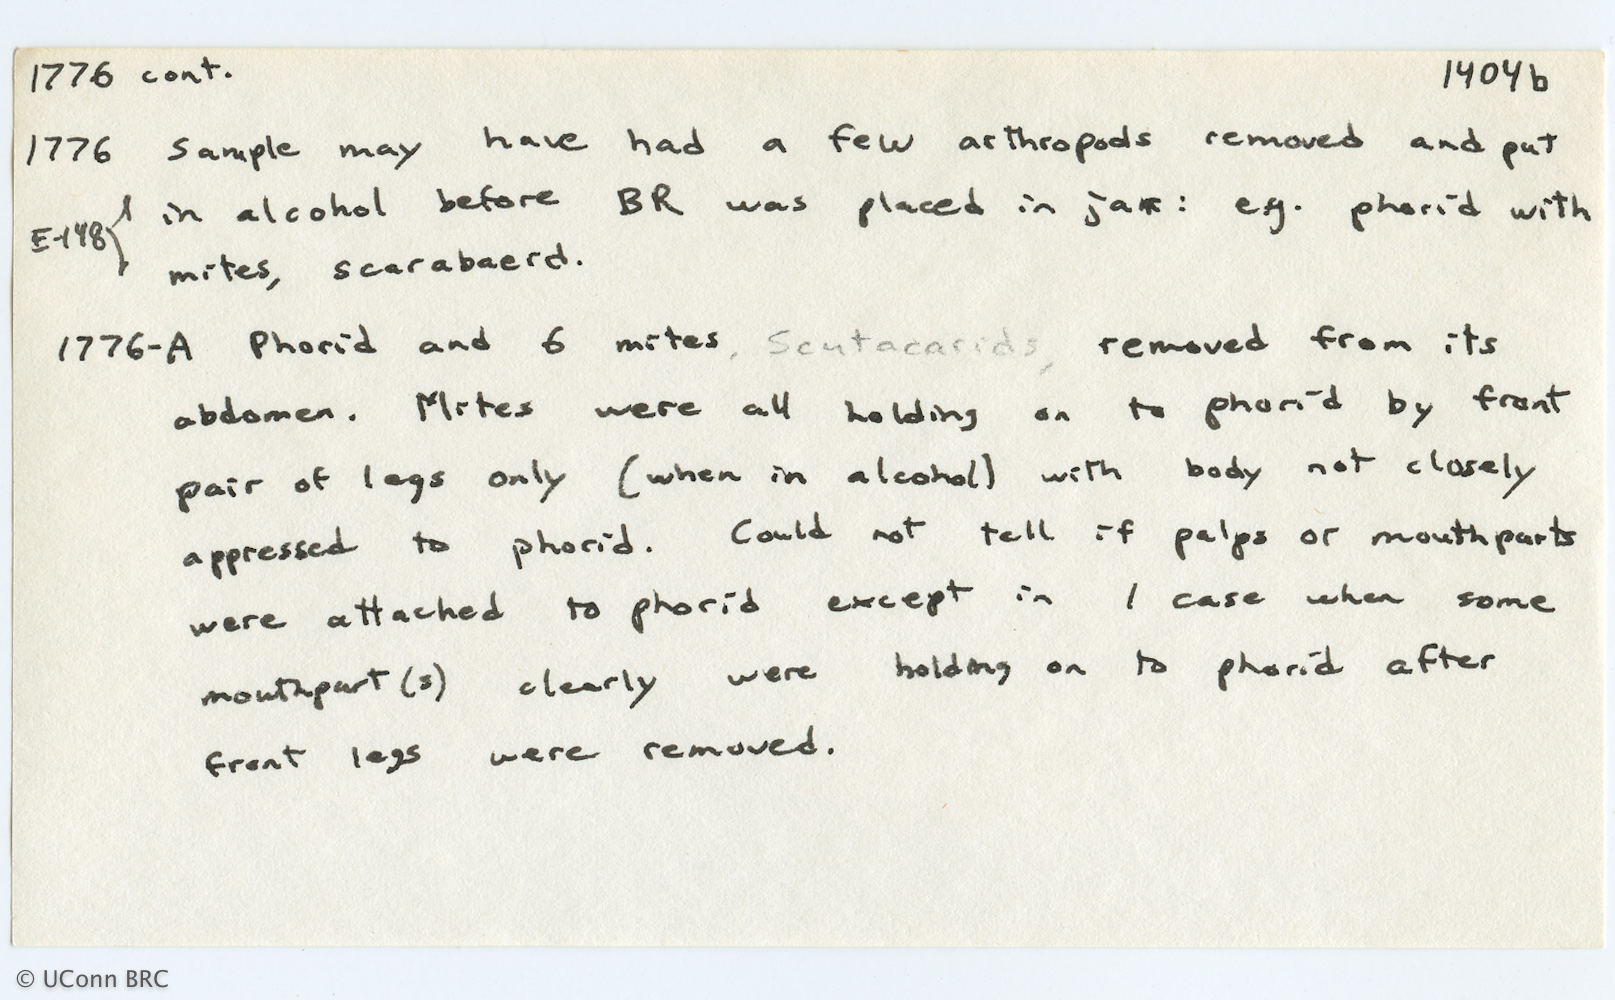 1776 cont. 1404b
1776 Sample may have had a few arthropods removed and put
E-148 { in alcohol before BR was placed in jar: eg. phorid with
mites, scarabaeid.
1776-A Phorid and 6 mites, Scutacarids, removed from its
abdomen. Mites were all holding on to phorid by front
pair of legs only (when in alcohol) with body not closely
appressed to phorid. Could not tell if palps or mouthparts
were attached to phorid except in 1 case when some
mouthpart(s) clearly were holding on to phorid after
front legs were removed.
© UConn BRC